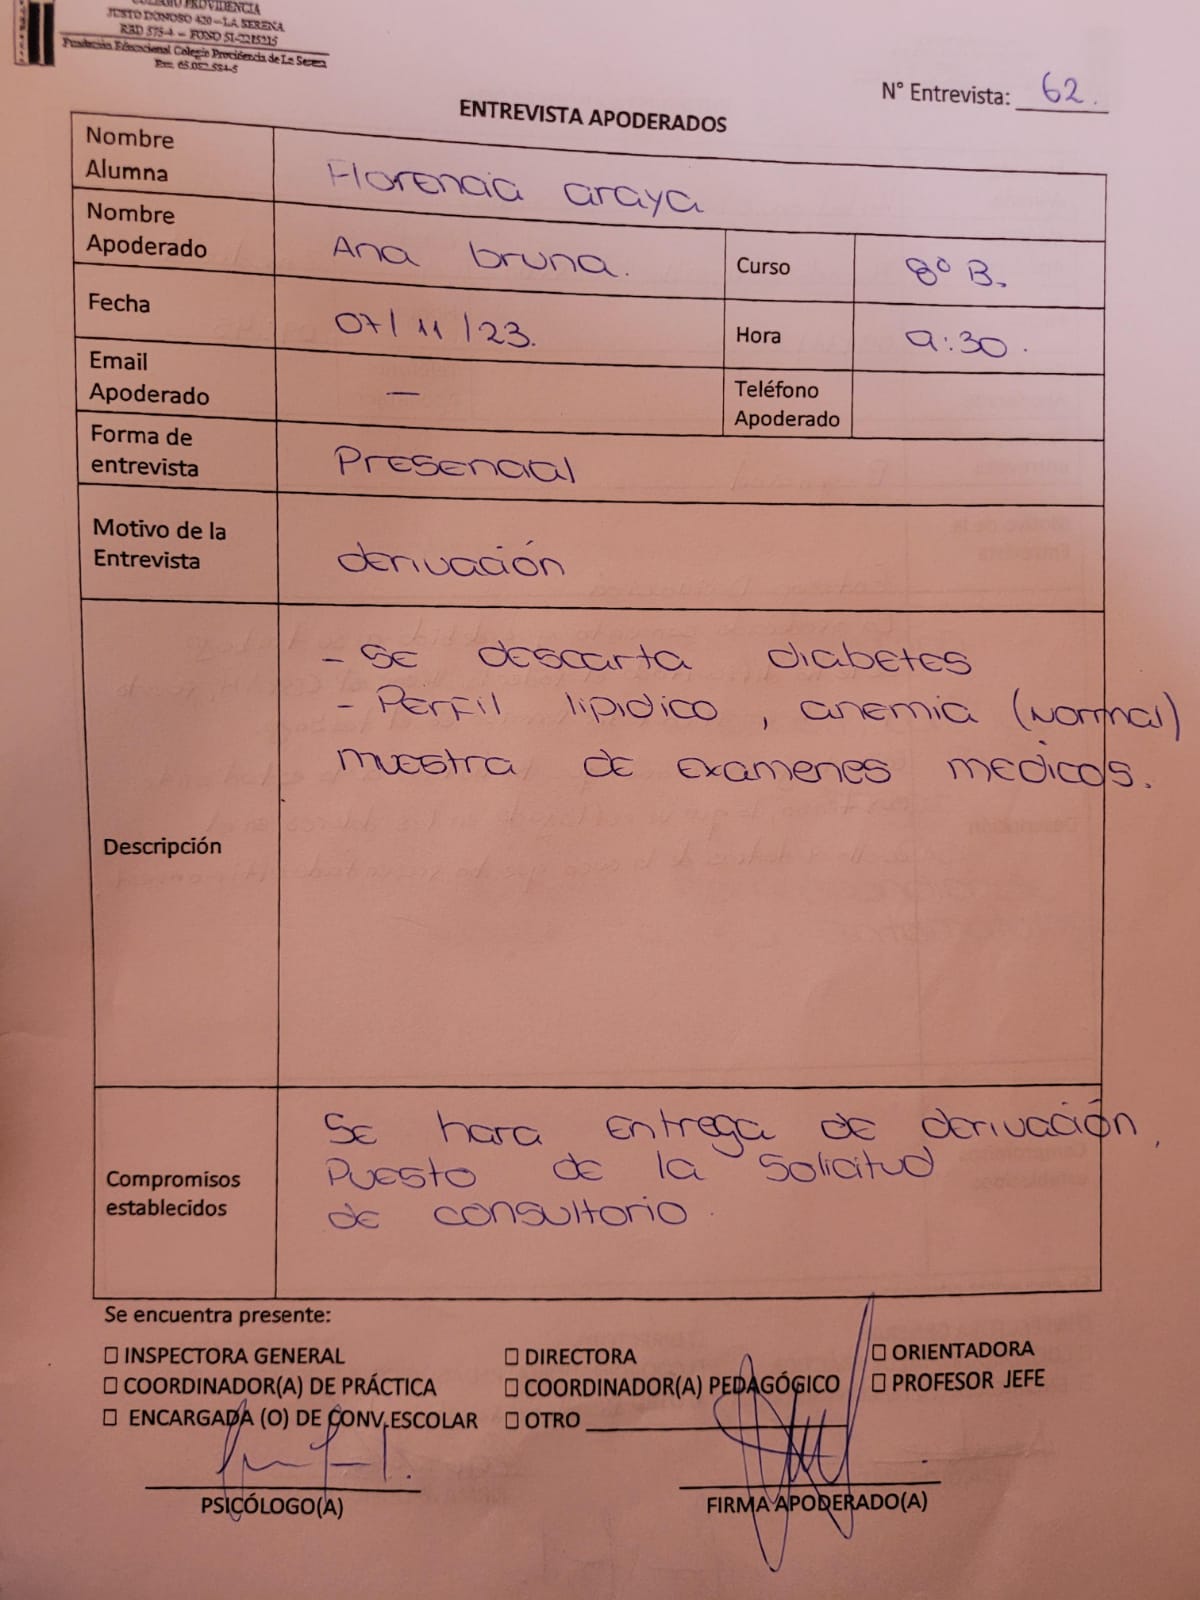 COLEGIO PROVIDENCIA
JUSTO DONOSO 420 – LA SERENA
RBD 575-4 – FONO 51-2215215
Fundación Educacional Colegio Providencia de La Serena
N° Entrevista: 62.
ENTREVISTA APODERADOS
Nombre Alumna
Florencia araya
Nombre Apoderado
Ana bruna.
Curso
8° B.
Fecha
07/11/23.
Hora
9:30.
Email Apoderado
—
Teléfono Apoderado
Forma de entrevista
Presencial
Motivo de la Entrevista
derivación
Descripción
- Se descarta diabetes
- Perfil lipidico, anemia (Normal)
muestra de examenes medicos.
Compromisos establecidos
Se hara entrega de derivación,
Puesto de la solicitud
de consultorio.
Se encuentra presente:
☐ INSPECTORA GENERAL ☐ DIRECTORA ☐ ORIENTADORA
☐ COORDINADOR(A) DE PRÁCTICA ☐ COORDINADOR(A) PEDAGÓGICO ☐ PROFESOR JEFE
☐ ENCARGADA (O) DE CONV.ESCOLAR ☐ OTRO
PSICÓLOGO(A) FIRMA APODERADO(A)